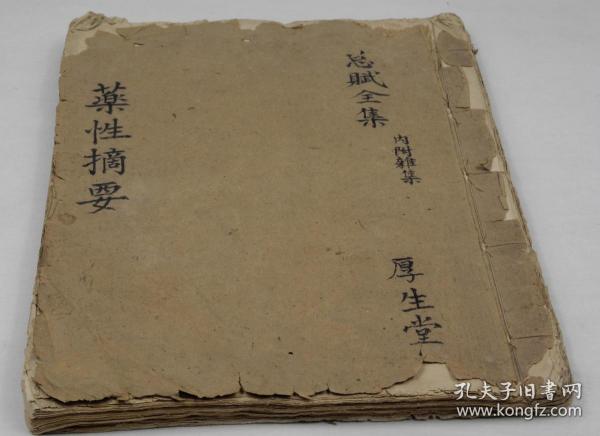 总賦全集
内附雜集
厚生堂
藥性摘要
孔夫子旧书网
www.kongfz.com